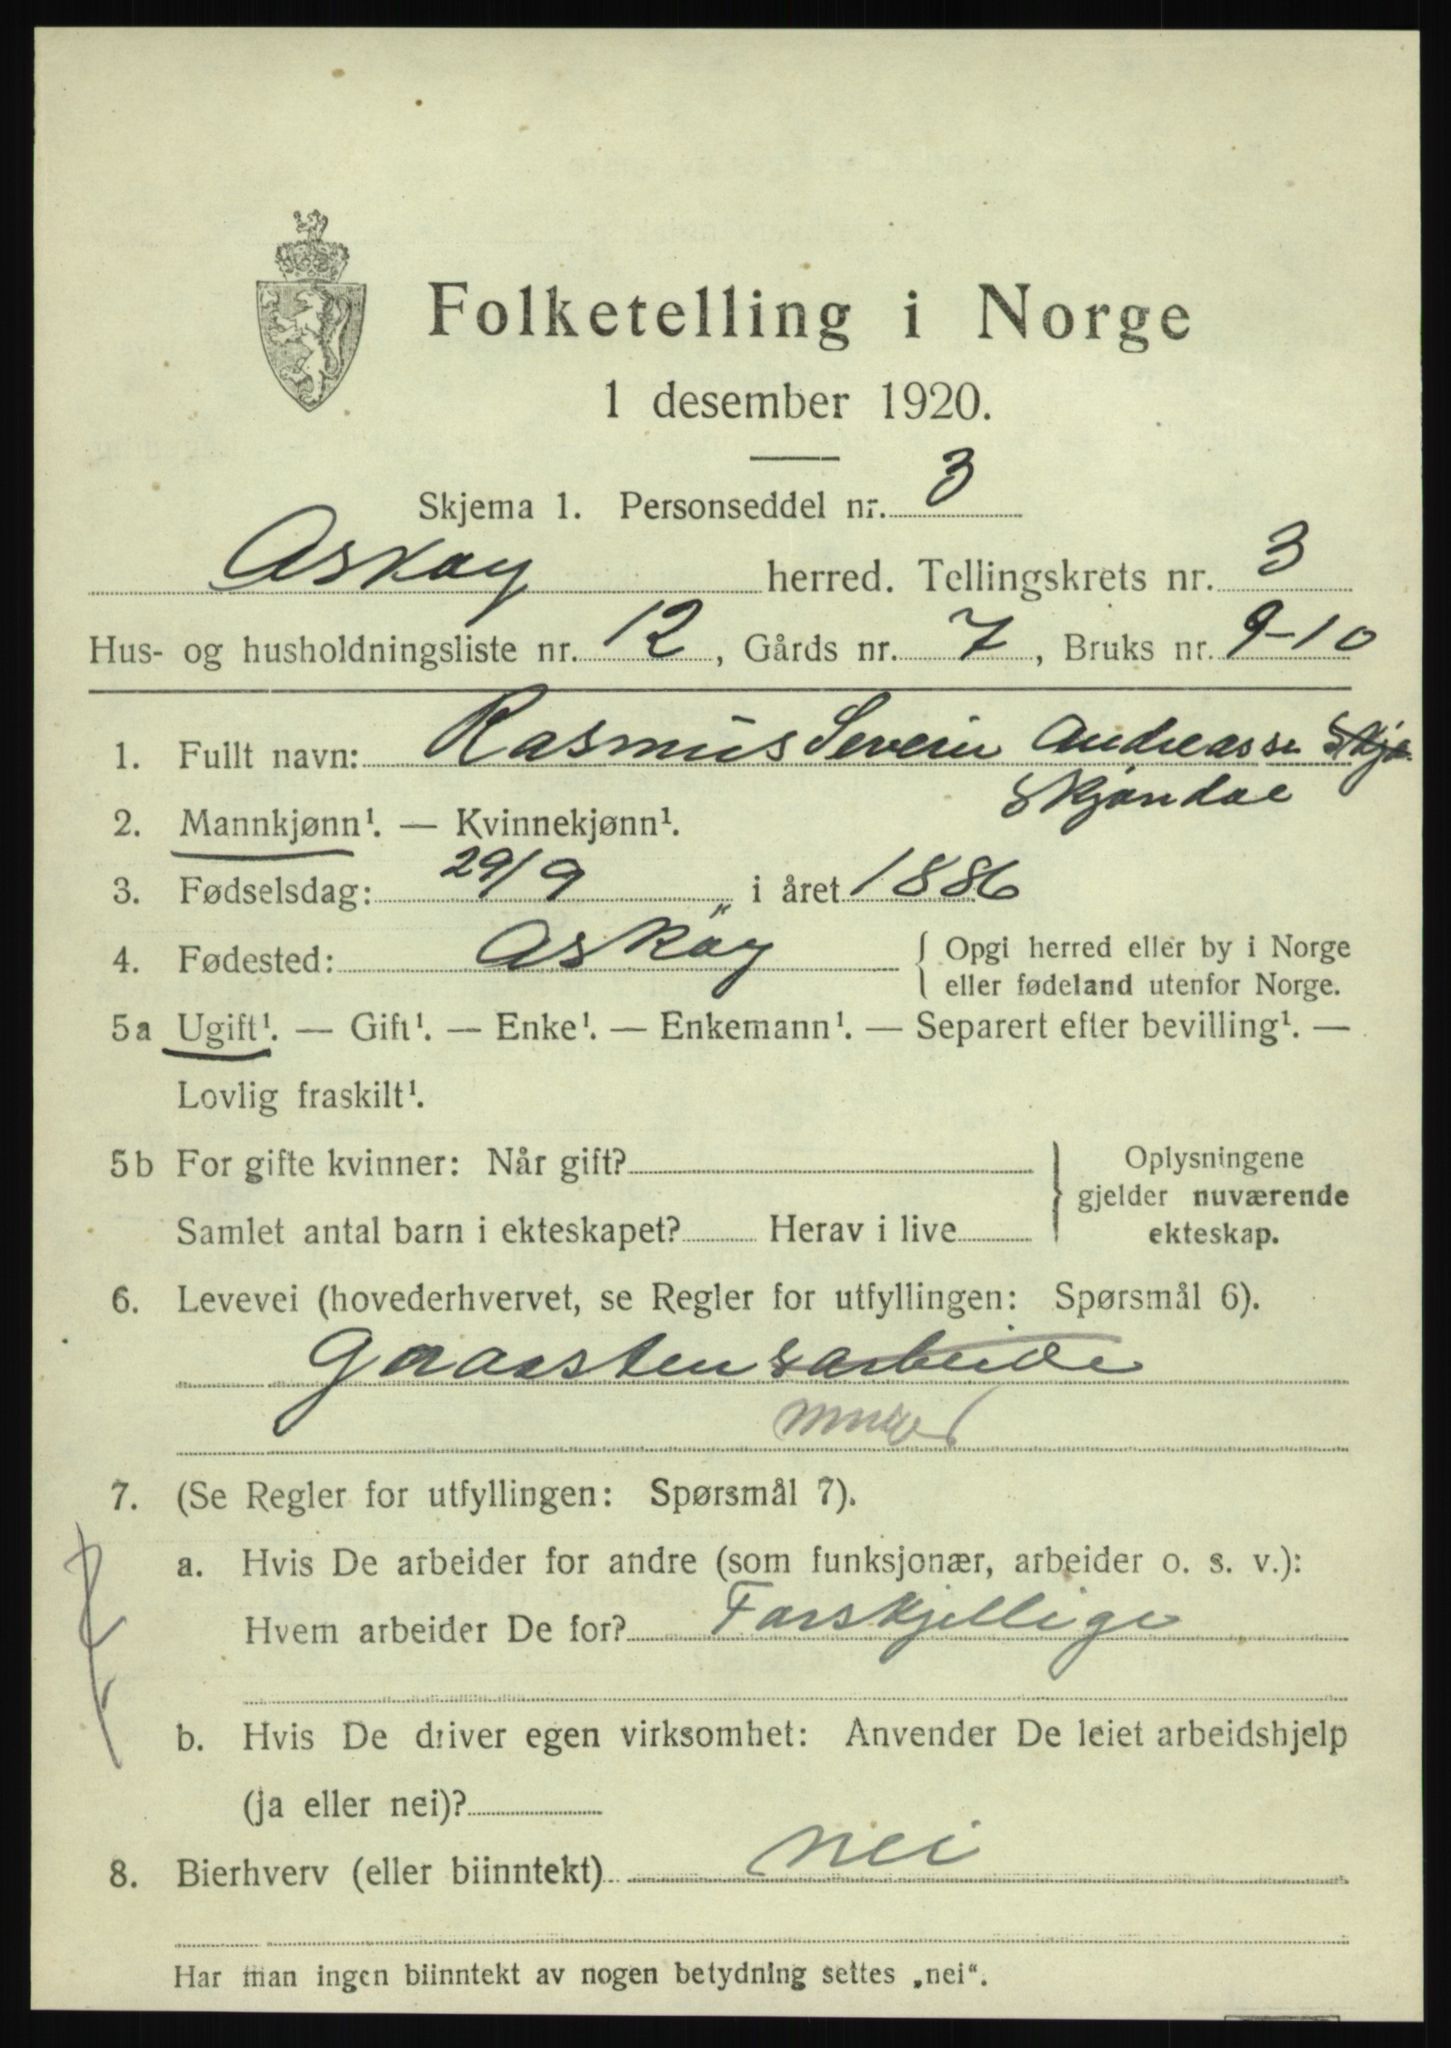 Folketelling i Norge
1 desember 1920.
Skjema 1. Personseddel nr. 3
Askøy herred. Tellingskrets nr. 3
Hus- og husholdningsliste nr. 12, Gårds nr. 7, Bruks nr. 9-10
1. Fullt navn: Rasmus Severin Andreassen Skjo
Skjondal
2. Mannkjønn¹. — Kvinnekjønn¹.
3. Fødselsdag: 29/9 i året 1886
4. Fødested: Askøy { Opgi herred eller by i Norge
eller fødeland utenfor Norge.
5a Ugift¹. — Gift¹. — Enke¹. — Enkemann¹. — Separert efter bevilling¹. —
Lovlig fraskilt¹.
5b For gifte kvinner: Når gift? } Oplysningene
gjelder nuværende
ekteskap.
Samlet antal barn i ekteskapet? Herav i live
6. Levevei (hovederhvervet, se Regler for utfyllingen: Spørsmål 6).
Graastensarbeide
murer
7. (Se Regler for utfyllingen: Spørsmål 7).
a. Hvis De arbeider for andre (som funksjonær, arbeider o. s. v.):
Hvem arbeider De for? Forskjellige
b. Hvis De driver egen virksomhet: Anvender De leiet arbeidshjelp
(ja eller nei)?
8. Bierhverv (eller biinntekt) nei
Har man ingen biinntekt av nogen betydning settes „nei“.